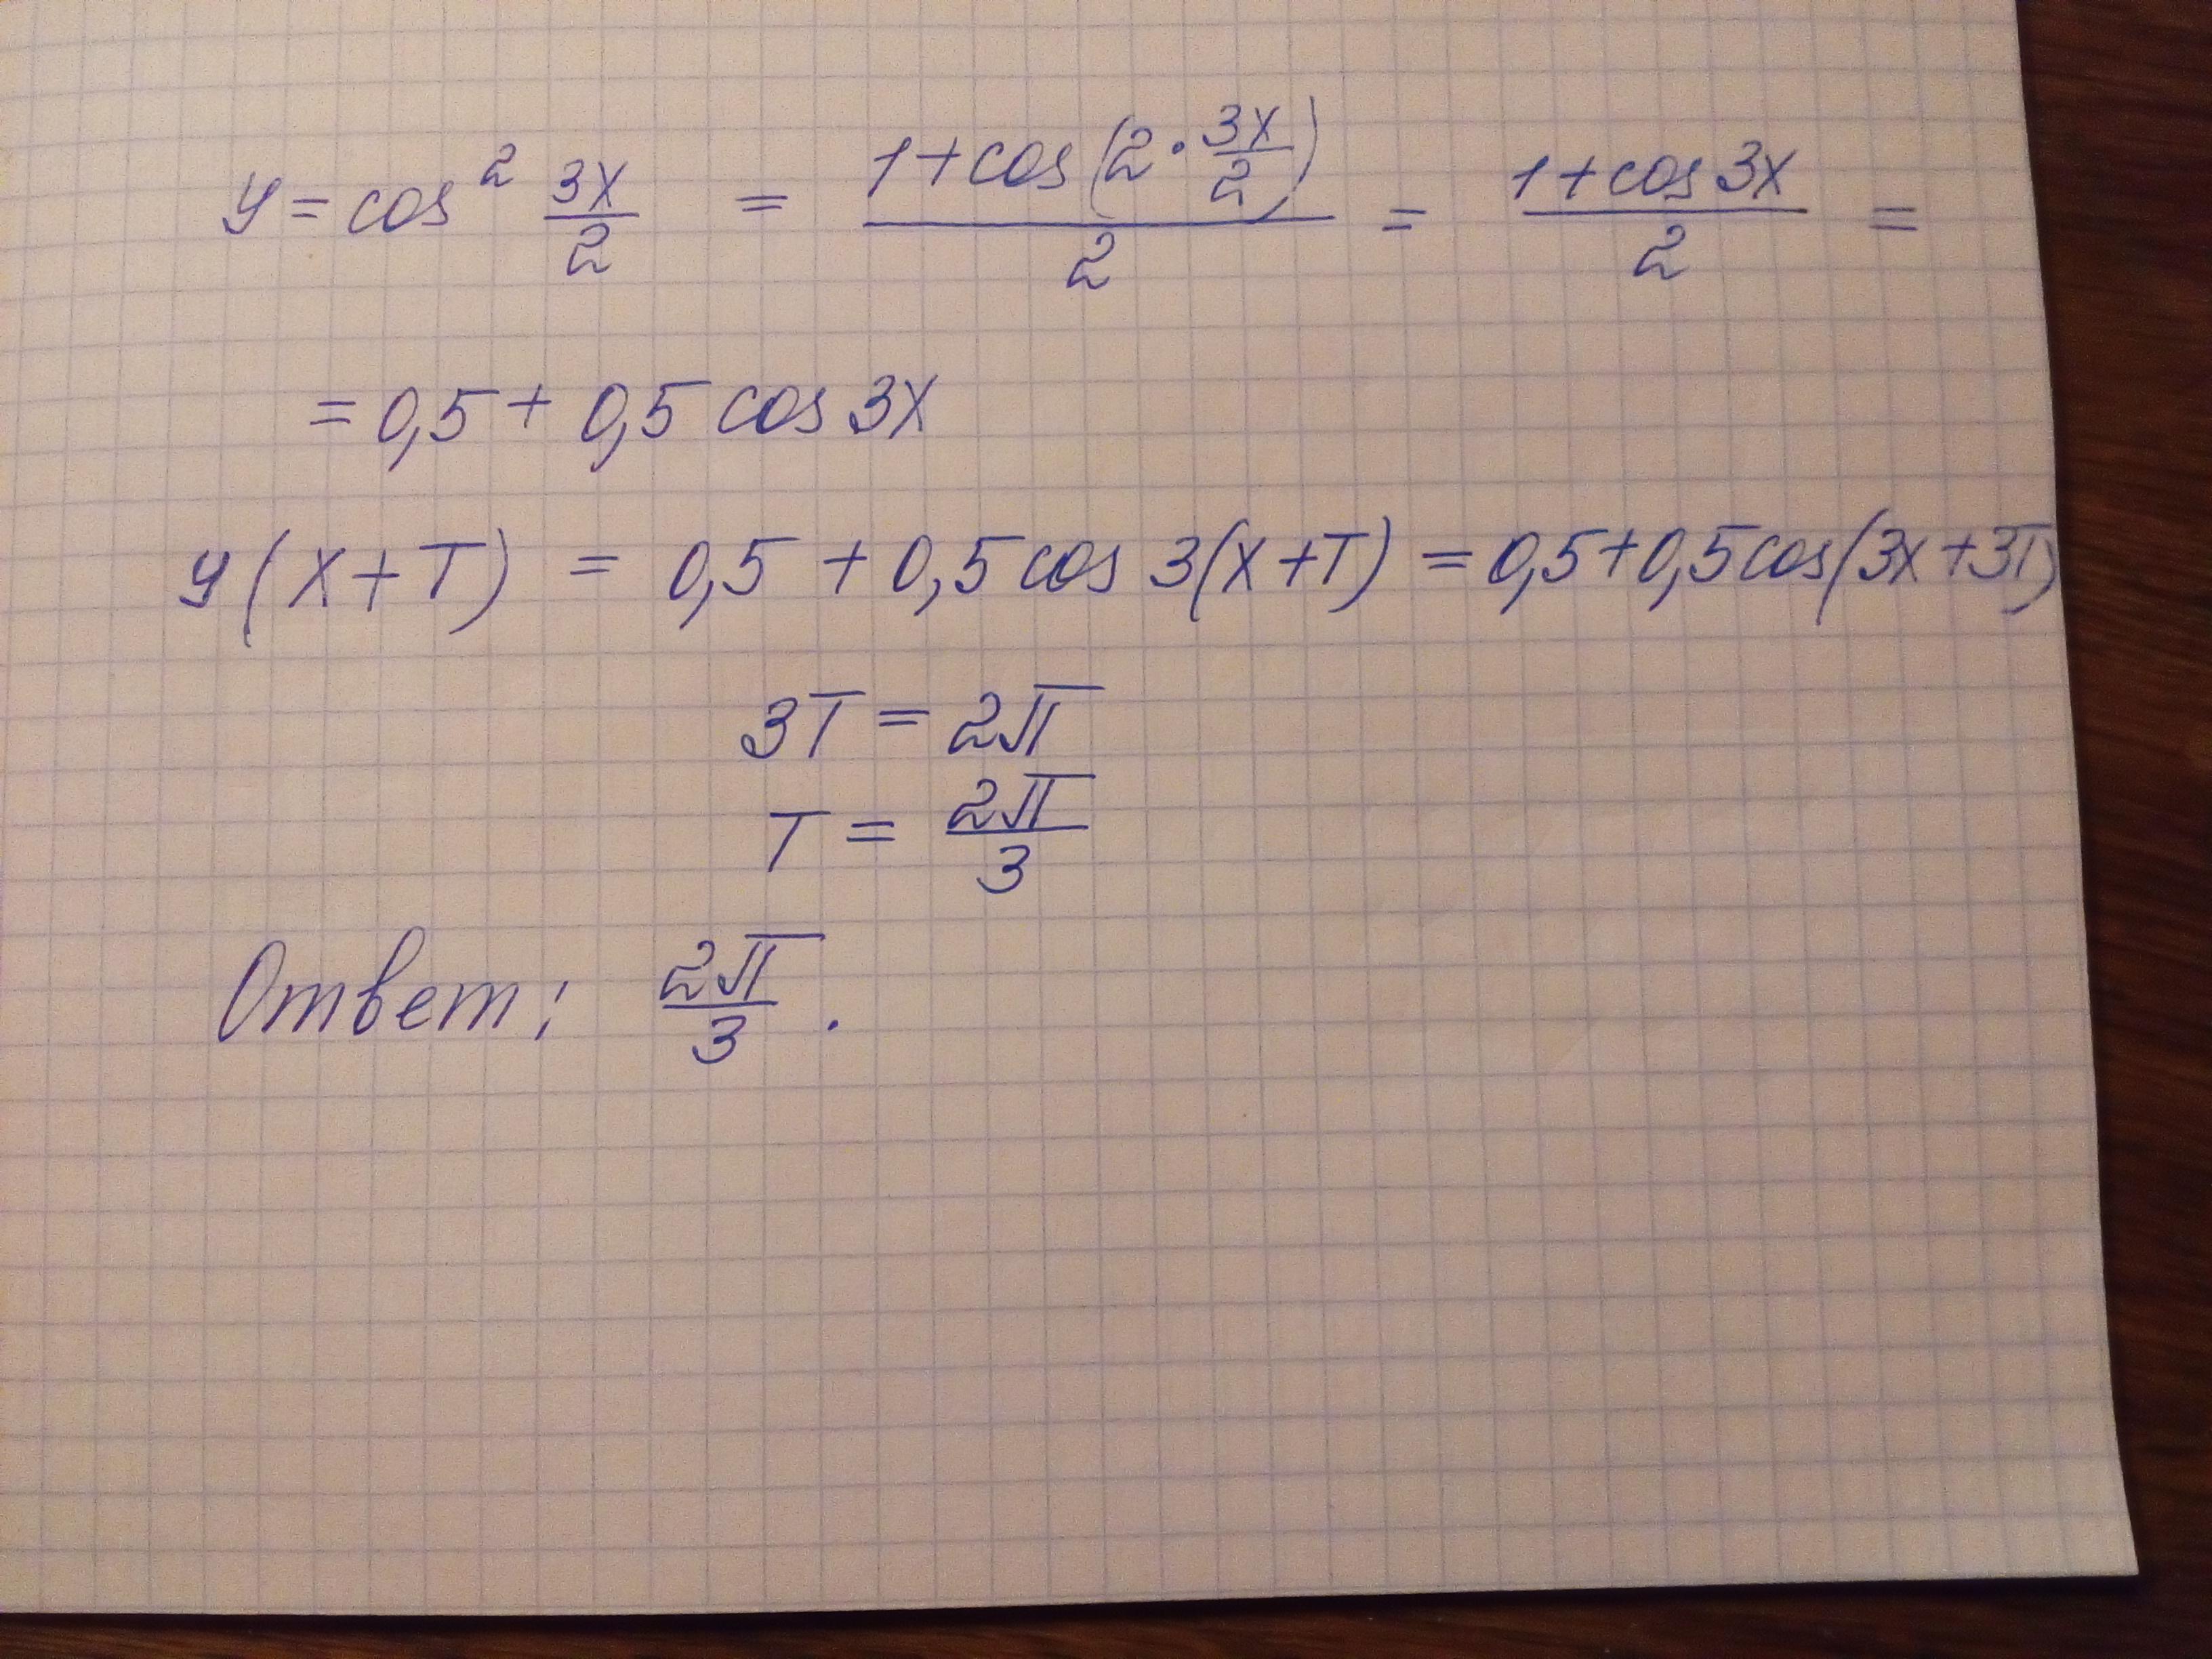 y = cos² 3x/2 = (1+cos(2·3x/2))/2 = (1+cos 3x)/2 =
= 0,5 + 0,5 cos 3x
y(x+T) = 0,5 + 0,5 cos 3(x+T) = 0,5+0,5cos(3x+3T)
3T = 2π
T = 2π/3
Ответ: 2π/3.